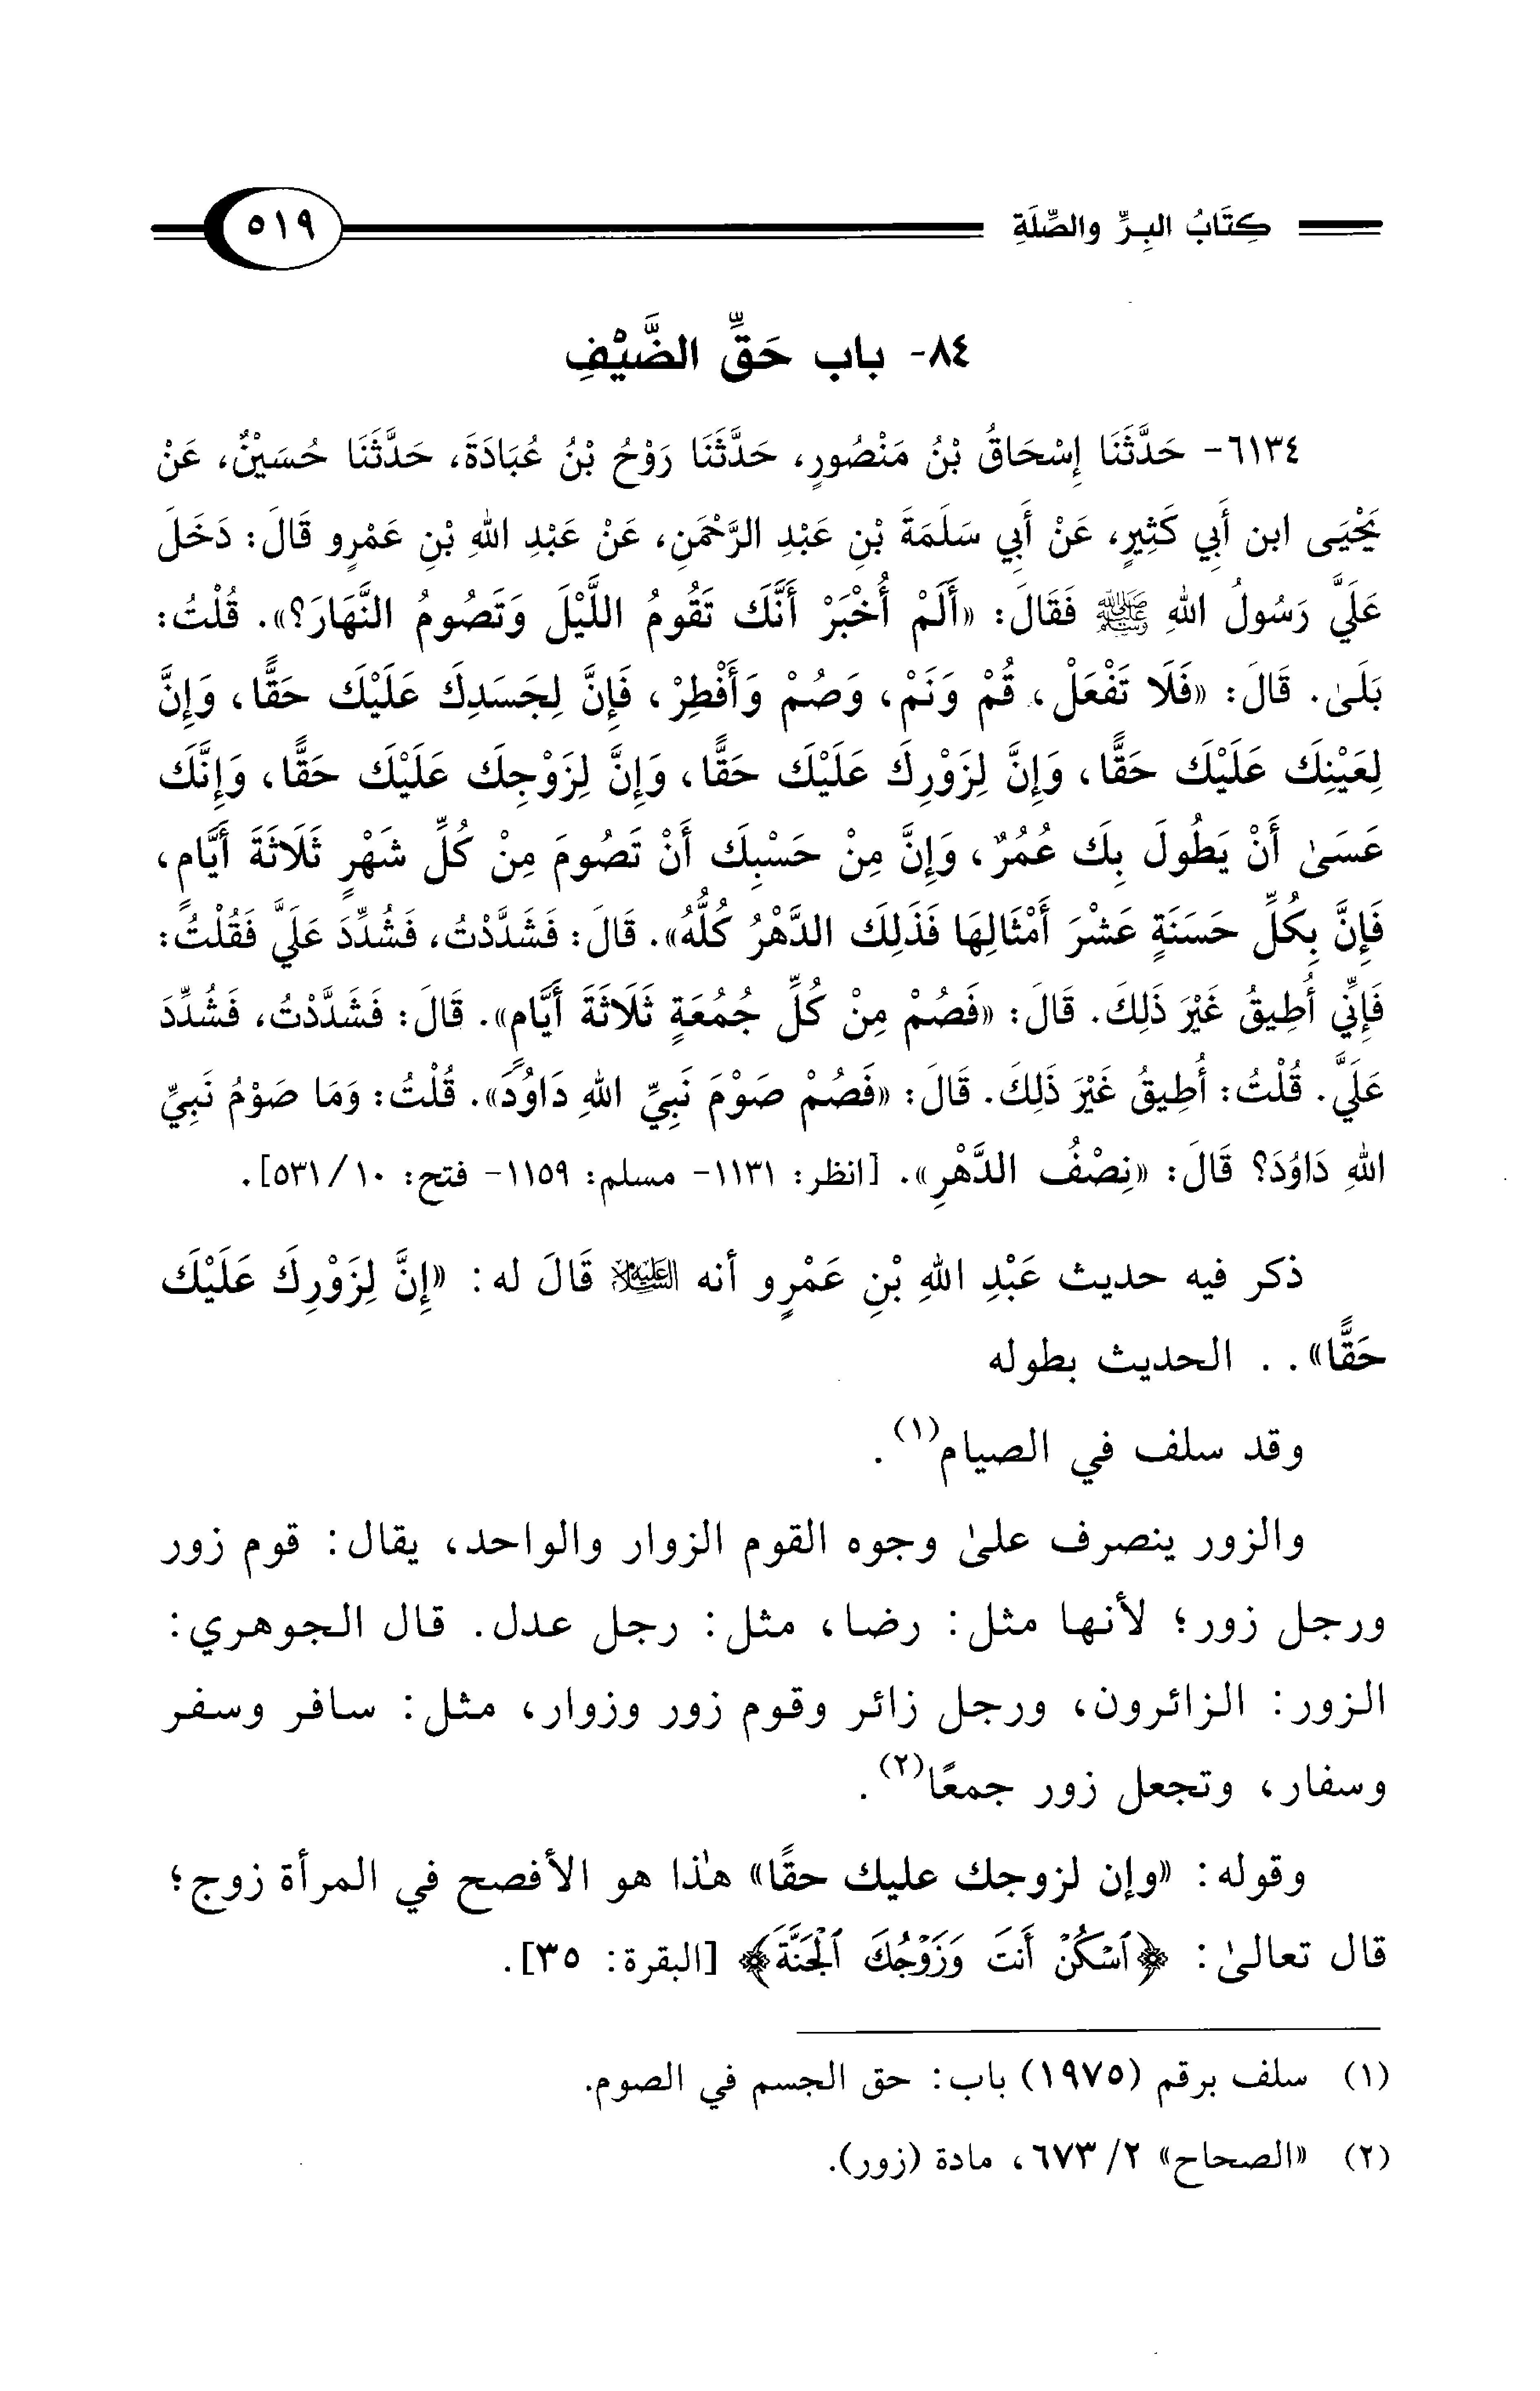 كِتَابُ البِرِّ والصِّلَةِ ٥١٩
٨٤- باب حَقِّ الضَّيْفِ
٦١٣٤- حَدَّثَنَا إِسْحَاقُ بْنُ مَنْصُورٍ، حَدَّثَنَا رَوْحُ بْنُ عُبَادَةَ، حَدَّثَنَا حُسَيْنٌ، عَنْ
يَحْيَى ابن أَبِي كَثِيرٍ، عَنْ أَبِي سَلَمَةَ بْنِ عَبْدِ الرَّحْمَنِ، عَنْ عَبْدِ اللهِ بْنِ عَمْرٍو قَالَ: دَخَلَ
عَلَيَّ رَسُولُ اللهِ ﷺ فَقَالَ: «أَلَمْ أُخْبَرْ أَنَّكَ تَقُومُ اللَّيْلَ وَتَصُومُ النَّهَارَ؟». قُلْتُ:
بَلَىٰ. قَالَ: «فَلَا تَفْعَلْ، قُمْ وَنَمْ، وَصُمْ وَأَفْطِرْ، فَإِنَّ لِجَسَدِكَ عَلَيْكَ حَقًّا، وَإِنَّ
لِعَيْنِكَ عَلَيْكَ حَقًّا، وَإِنَّ لِزَوْرِكَ عَلَيْكَ حَقًّا، وَإِنَّ لِزَوْجِكَ عَلَيْكَ حَقًّا، وَإِنَّكَ
عَسَىٰ أَنْ يَطُولَ بِكَ عُمُرٌ، وَإِنَّ مِنْ حَسْبِكَ أَنْ تَصُومَ مِنْ كُلِّ شَهْرٍ ثَلَاثَةَ أَيَّامٍ،
فَإِنَّ بِكُلِّ حَسَنَةٍ عَشْرَ أَمْثَالِهَا فَذَلِكَ الدَّهْرُ كُلُّهُ». قَالَ: فَشَدَّدْتُ، فَشُدِّدَ عَلَيَّ فَقُلْتُ:
فَإِنِّي أُطِيقُ غَيْرَ ذَلِكَ. قَالَ: «فَصُمْ مِنْ كُلِّ جُمُعَةٍ ثَلَاثَةَ أَيَّامٍ». قَالَ: فَشَدَّدْتُ، فَشُدِّدَ
عَلَيَّ. قُلْتُ: أُطِيقُ غَيْرَ ذَلِكَ. قَالَ: «فَصُمْ صَوْمَ نَبِيِّ اللهِ دَاوُدَ». قُلْتُ: وَمَا صَوْمُ نَبِيِّ
اللهِ دَاوُدَ؟ قَالَ: «نِصْفُ الدَّهْرِ». [انظر: ١١٣١- مسلم: ١١٥٩- فتح: ١٠/ ٥٣١].
ذكر فيه حديث عَبْدِ اللهِ بْنِ عَمْرٍو أنه عليه السلام قَالَ له: «إِنَّ لِزَوْرِكَ عَلَيْكَ
حَقًّا».. الحديث بطوله
وقد سلف في الصيام(١).
والزور ينصرف علىٰ وجوه القوم الزوار والواحد، يقال: قوم زور
ورجل زور؛ لأنها مثل: رضا، مثل: رجل عدل. قال الجوهري:
الزور: الزائرون، ورجل زائر وقوم زور وزوار، مثل: سافر وسفر
وسفار، وتجعل زور جمعًا(٢).
وقوله: «وإن لزوجك عليك حقًا» هٰذا هو الأفصح في المرأة زوج؛
قال تعالىٰ: ﴿ٱسۡكُنۡ أَنتَ وَزَوۡجُكَ ٱلۡجَنَّةَ﴾ [البقرة: ٣٥].
(١) سلف برقم (١٩٧٥) باب: حق الجسم في الصوم.
(٢) «الصحاح» ٢/ ٦٧٣، مادة (زور).